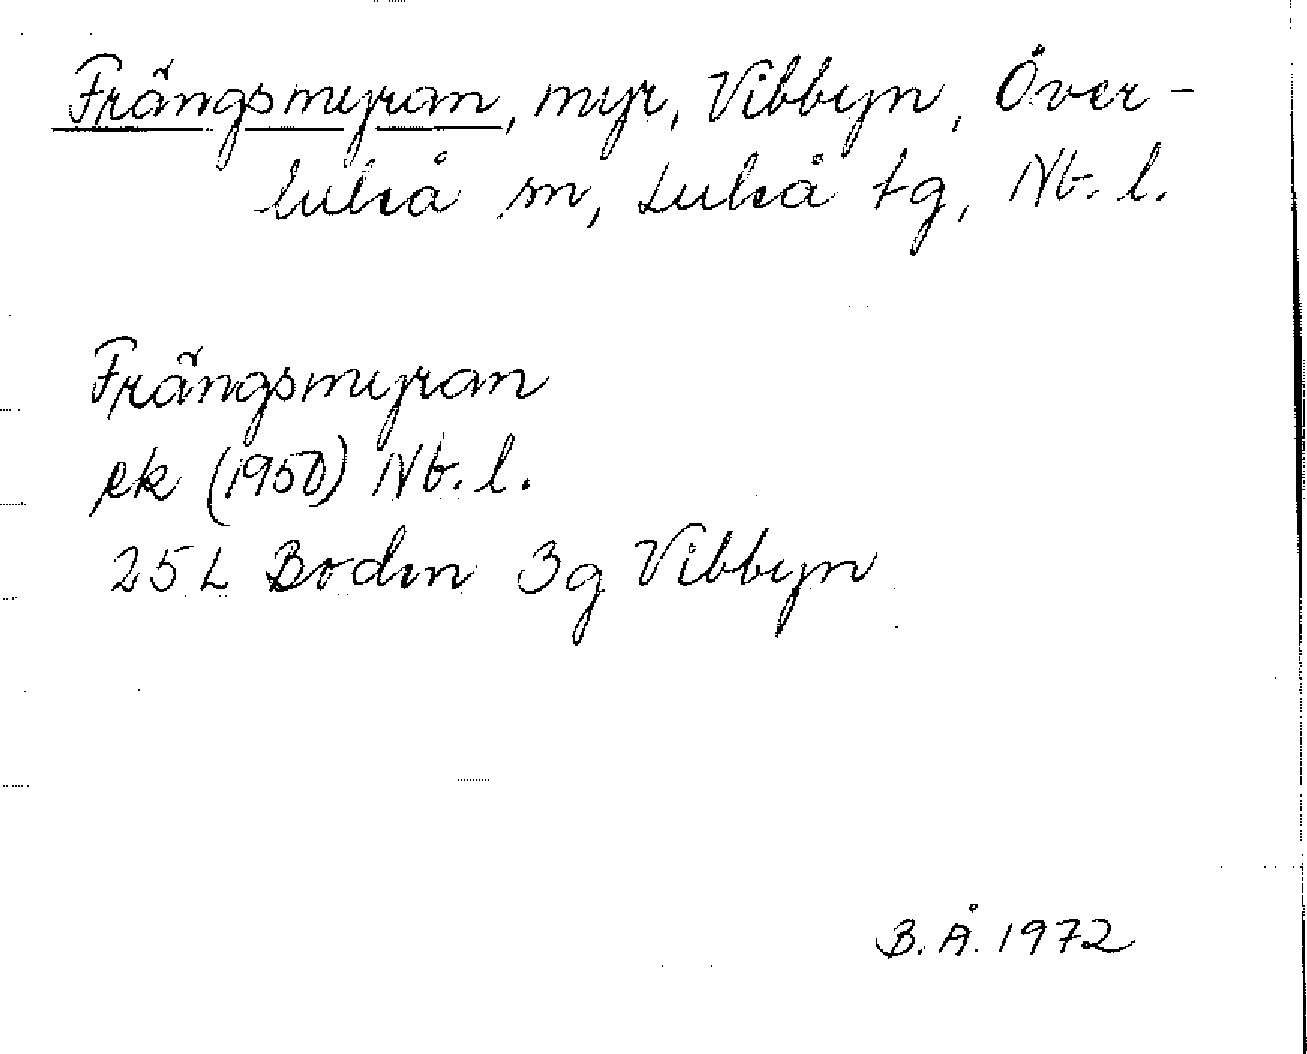 Frängsmyran, myr, Vibbyn, Över-
luleå sn, Luleå tg, Nb. l.
Frängsmyran
ek (1950) Nb. l.
25 L Boden 3g Vibbyn
B. Å. 1972